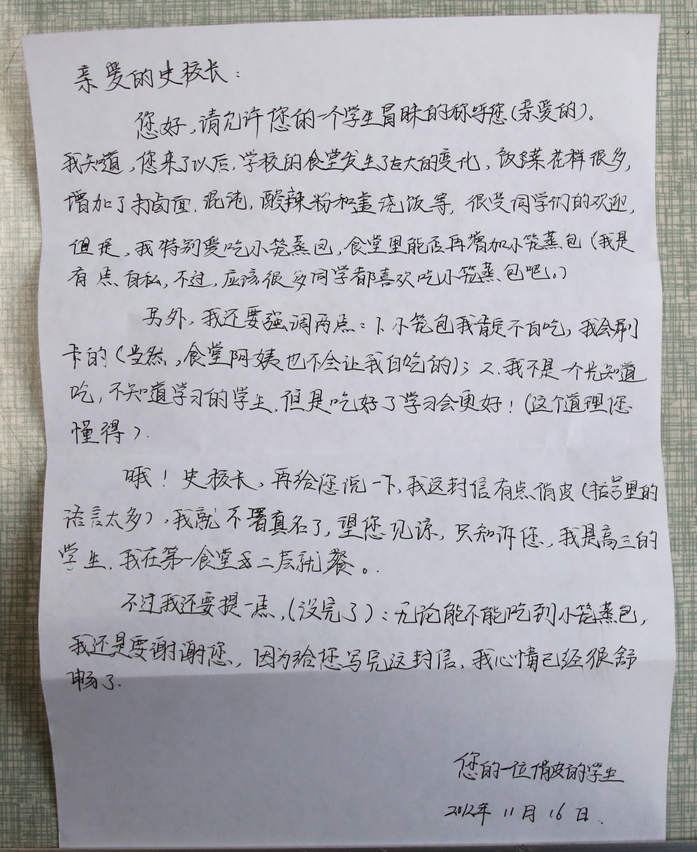 亲爱的史校长:
您好,请允许您的一个学生冒昧的称呼您(亲爱的)。
我知道,您来了以后,学校的食堂发生了巨大的变化,饭菜花样很多,
增加了打卤面.混沌,酸辣粉和盖浇饭等,很受同学们的欢迎,
但是,我特别爱吃小笼蒸包,食堂里能否再增加小笼蒸包(我是
有点自私,不过,应该很多同学都喜欢吃小笼蒸包吧。)
另外,我还要强调两点:1.小笼包我肯定不白吃,我会刷
卡的(当然,食堂阿姨也不会让我白吃的);2.我不是一个光知道
吃,不知道学习的学生.但是吃好了学习会更好!(这个道理您
懂得).
哦!史校长,再给您说一下,我这封信有点俏皮(括号里的
语言太多),我就不署真名了,望您见谅,只知诉您,我是高三的
学生.我在第一食堂二层就餐。
不过我还要提一点,(没完了):无论能不能吃到小笼蒸包,
我还是要谢谢您,因为给您写完这封信,我心情已经很舒
畅了.
您的一位俏皮的学生
2012年11月16日.